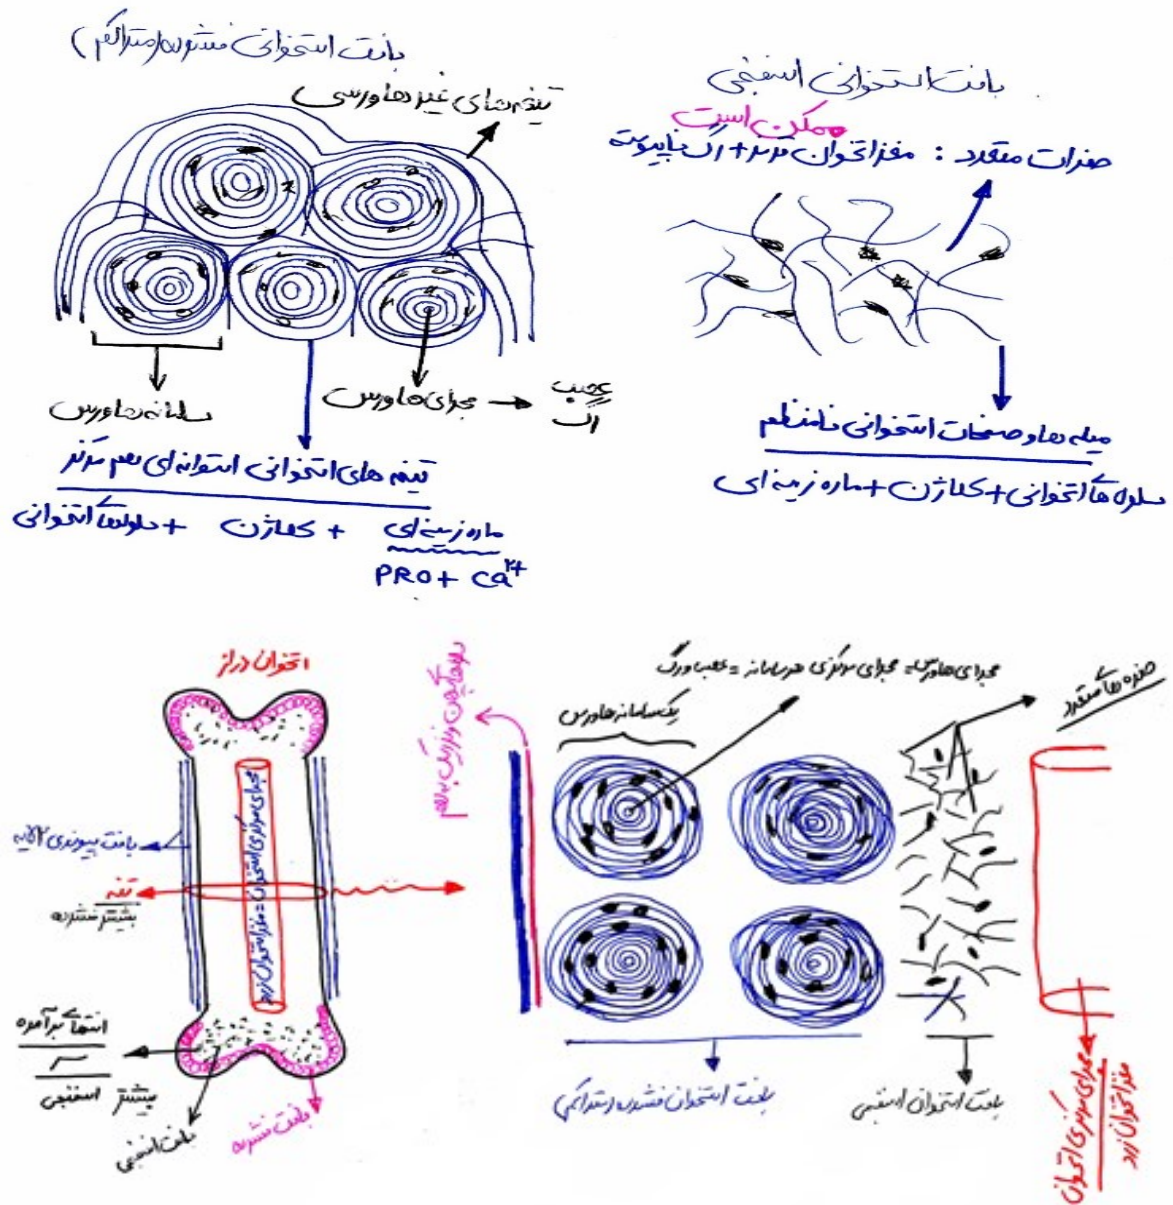 بافت استخوانی فشرده (متراکم)
تیغه‌های غیر هاورسی
سامانه هاورس
مجرای هاورس → عصب
رگ
تیغه های استخوانی استوانه‌ای هم مرکز
ماده زمینه‌ای + کلاژن + سلولهای استخوانی
PRO + Ca²⁺
بافت استخوانی اسفنجی
ممکن است
حفرات متعدد : مغز استخوان قرمز + رگ ناپیوسته
میله ها و صفحات استخوانی نامنظم
سلول های استخوانی + کلاژن + ماده زمینه ای
استخوان دراز
بافت پیوندی ۲ لایه
تنه
بیشتر فشرده
مجرای مرکزی استخوان = مغز استخوان زرد
انتهای برآمده
بیشتر اسفنجی
بافت اسفنجی
بافت فشرده
مجرای هاورس = مجرای مرکزی هر سامانه = عصب و رگ
یک سامانه هاورس
حفره های متعدد
بافت استخوان فشرده (متراکم)
بافت استخوان اسفنجی
مجرای مرکزی استخوان
مغز استخوان زرد